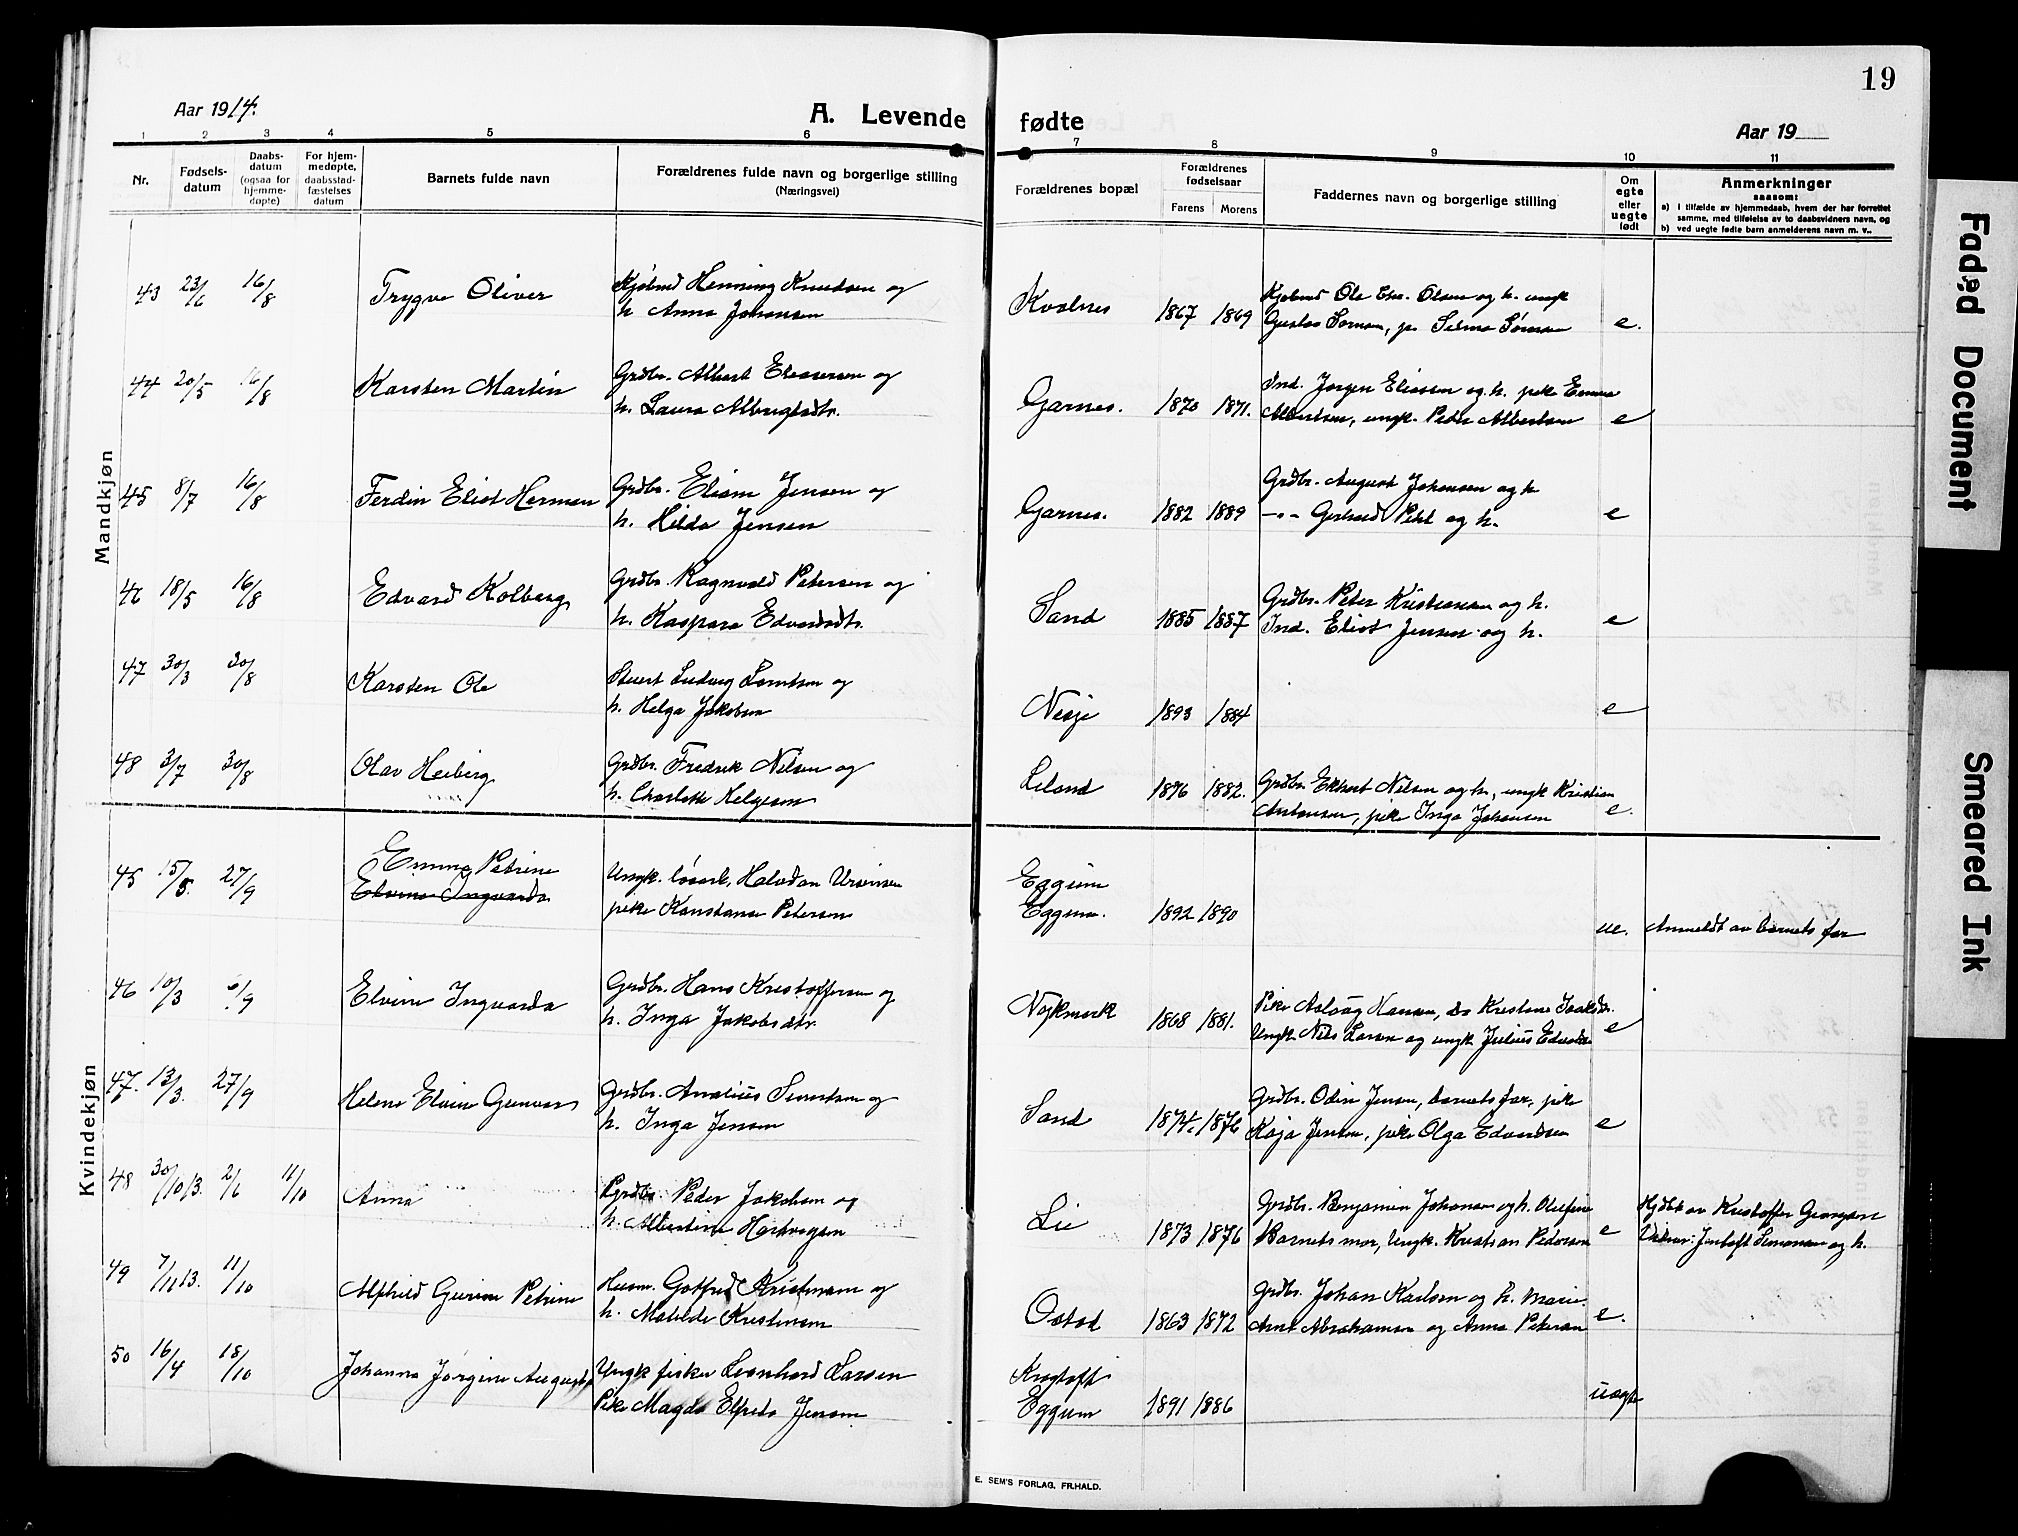 19
Aar 1914.
A. Levende fødte
Aar 19
1 2 3 4 5 6 7 8 9 10 11
Nr.
Fødsels-
datum
Daabs-
datum
(ogsaa for
hjemme-
døpte)
For hjem-
medøpte,
daabsstad-
fæstelses
datum
Barnets fulde navn
Forældrenes fulde navn og borgerlige stilling
(Næringsvei)
Forældrenes bopæl
Forældrenes
fødselsaar
Farens Morens
Faddernes navn og borgerlige stilling
Om
egte
eller
uegte
født
Anmerkninger
saasom:
a) I tilfælde av hjemmedaab, hvem der har forrettet
samme, med tilføielse av to daabsvidners navn, og
b) ved uegte fødte barn anmelderens navn m. v..
Mandkjøn
43 23/6 16/8 Trygve Oliver Henning Knudsen og
h. Anna Johansen
Kvalnes 1867 1869 Ole Chr. Olsen og h. ungk
e.
44 20/5 16/8 Karsten Martin Grdbr. Albert Eliassen og
h. Laura Albrigtsdtr.
Garnes. 1870 1871. Ind. Jørgen Eliassen og h. pike Emma
Albertsen, ungk. Peder Albertsen e
45 8/7 16/8 Ferdin Eliot Herman Grdbr. Eliam Jensen og
h. Hilda Jensen
Garnes. 1882 1889 Grdbr. August Johansen og h
-"- Gerhard og h. e
46 18/5 16/8 Edvard Kolberg Grdbr. Ragnvald Petersen og
h. Kaspara Edvardsdtr.
Sand 1885 1887 Grdbr. Peter Kristiansen og h.
Ind. Eliot Jensen og h. e
47 30/3 30/8 Karsten Ole Ludvig Lorntsen og
h. Helga Jakobsen
Nesje 1893 1884 e
48 3/7 30/8 Olav Heiberg Grdbr. Fredrik Nilsen og
h. Charlotte Helgesen
Leland 1876 1882. Grdbr. Ekbert Nilsen og h., ungk Kristian
Antonsen, pike Inga Johansen e.
Kvindekjøn
45 15/8. 27/9 Emma Petrine
Elvine Ingvarda
Ungk. løsarb. Halvdan
pike Konstanse Petersen
Eggum
Eggum. 1892 1890 ue. Anmeldt av barnets far
46 10/3 6/9 Elvine Ingvarda Grdbr. Hans Kristoffersen og
h. Inga Jakobsdtr.
Nykmark 1868 1881. Pike Aslaug Hansen, do Kristine
Ungk. Nils Larsen og ungk Julius e
47. 13/3. 27/9 Helene Elvine Gunvor Grdbr. Analius og
h. Inga Jensen
Sand 1874. 1876 Grdbr. Odin Jensen, barnets far, pike
Kaja Jensen, pike Olga Edvardsen e
48 30/10 13. 2/6 11/10 Anna Grdbr. Peder Jakobsen og
h. Albertine Hartvigsen
Lie 1873 1876 Grdbr. Benjamin Johansen og h. Olufine
Barnets mor, Ungk. Kristian Pedersen e Hjdbt av Kristoffer
Vidner: Jentoft Simonsen og h.
49 7/11 13. 11/10 Alfhild Gurine Petrine Husm. Gotfred Kristensen og
h. Matilde Kristensen
Ostad 1863 1872 Grdbr. Johan Karlsen og h. Marie.
Arnt Abrahamsen og Anna Petersen e.
50 16/4 18/10 Johanna Jørgine Augusta Ungk fisker Leonhard Larsen
Pike Magda Elfrida Jensen
Krystoft
Eggum 1891 1886 uegte
E. SEM'S FORLAG, FR.HALD.
Faded Document
Smeared Ink